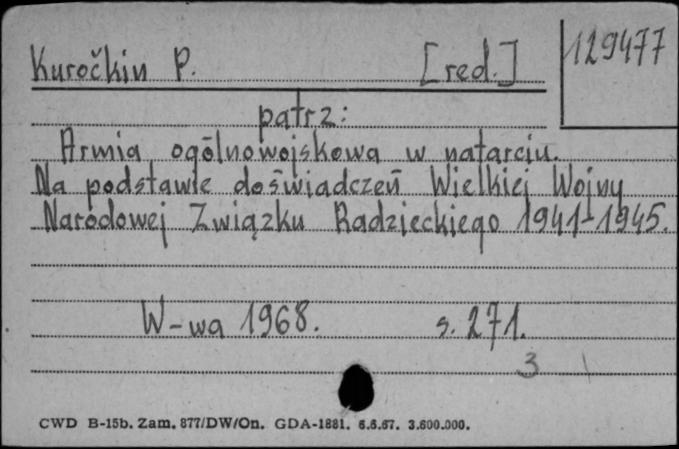 129477
Kuročkin P. [red.]
patrz:
Armia ogólnowojskowa w natarciu.
Na podstawie doświadczeń Wielkiej Wojny
Narodowej Związku Radzieckiego 1941-1945.
W-wa 1968. s. 271.
3
CWD B-15b. Zam. 877/DW/On. GDA-1881. 6.6.67. 3.600.000.